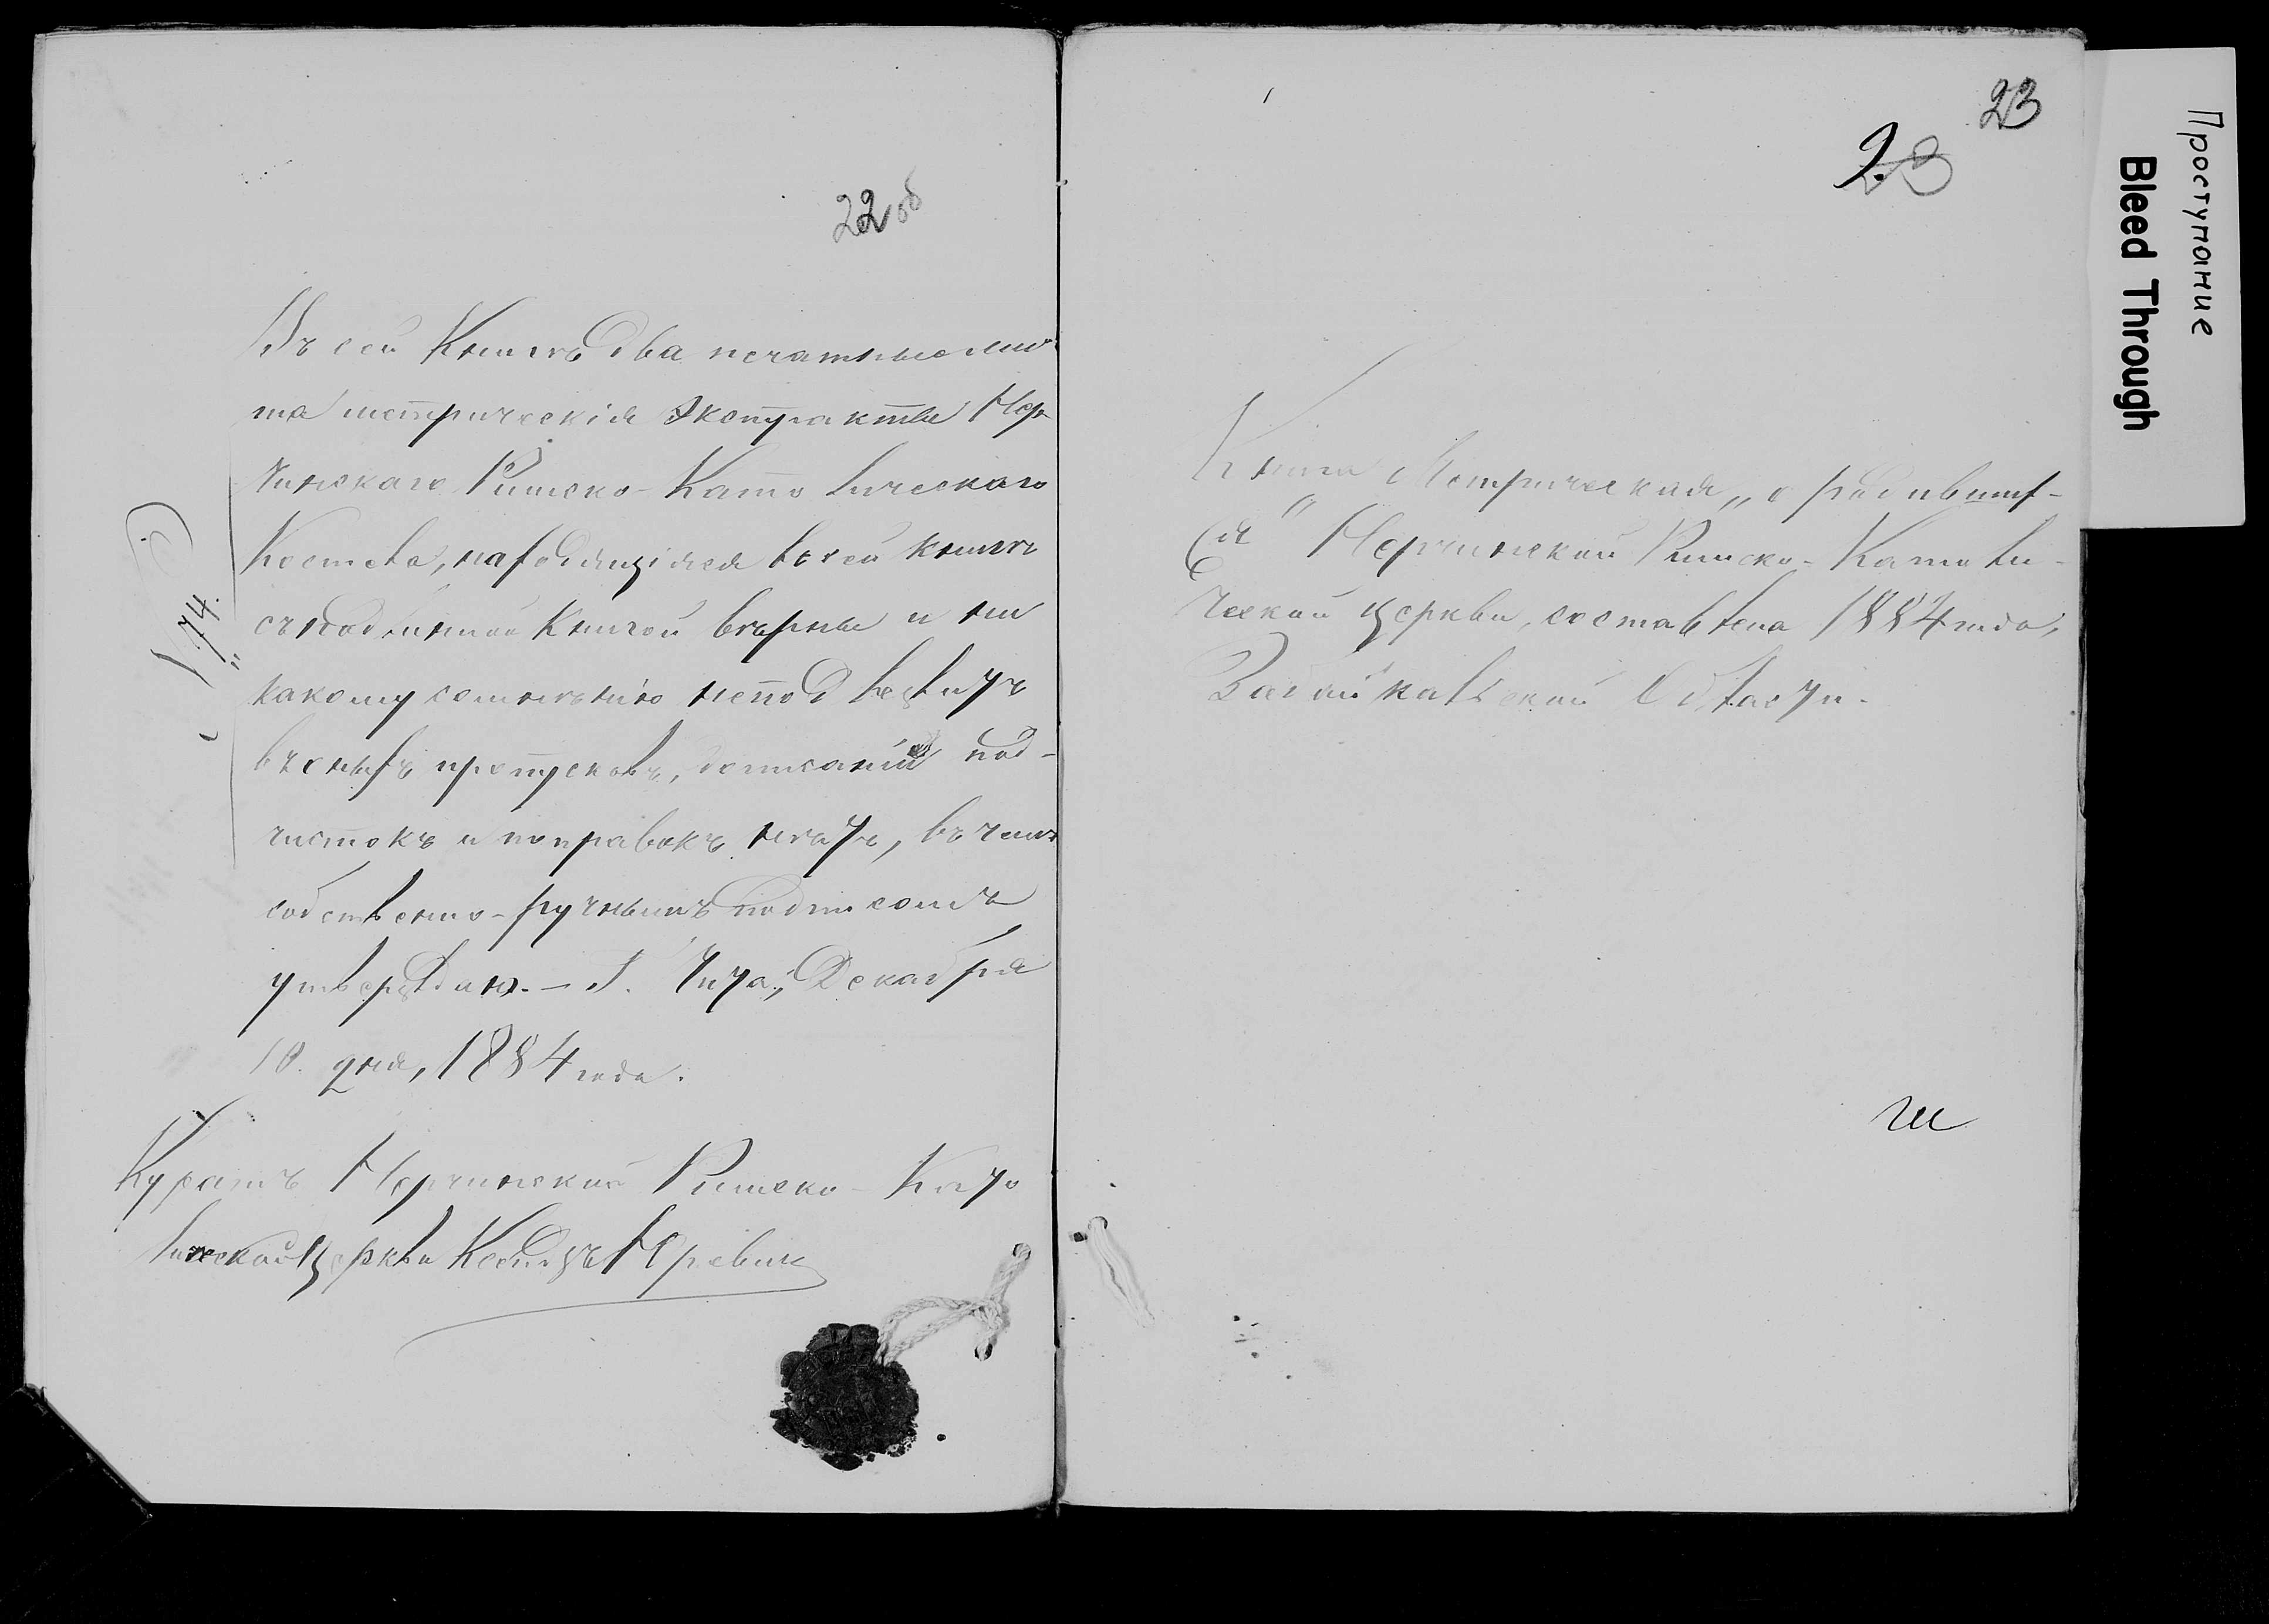 22 об
Въ сей Книгѣ два печатные лис
та метрическія Экстракты Нер
чинскаго Римско-Католическаго
Костела, находящіяся въ сей книгѣ
съ подлинной Книгой вѣрны и ни
какому сомнѣнію неподлежитъ
въ оныхъ пропусковъ, дописаній под-
чистокъ и поправокъ нѣтъ, въ чемъ
собственно-ручнымъ подписомъ
утверждаю. – Г. Чита, Декабря
10. дня, 1884 года.
Куратъ Нерчинской Римско-Като
лической Церкви Ксендзъ
174.
23
23
Книга Метрическая „о родивших-
ся" Нерчинской Римско-Католи-
ческой церкви, составлена 1884 года,
Забайкальской Области.
Проступание
Bleed Through